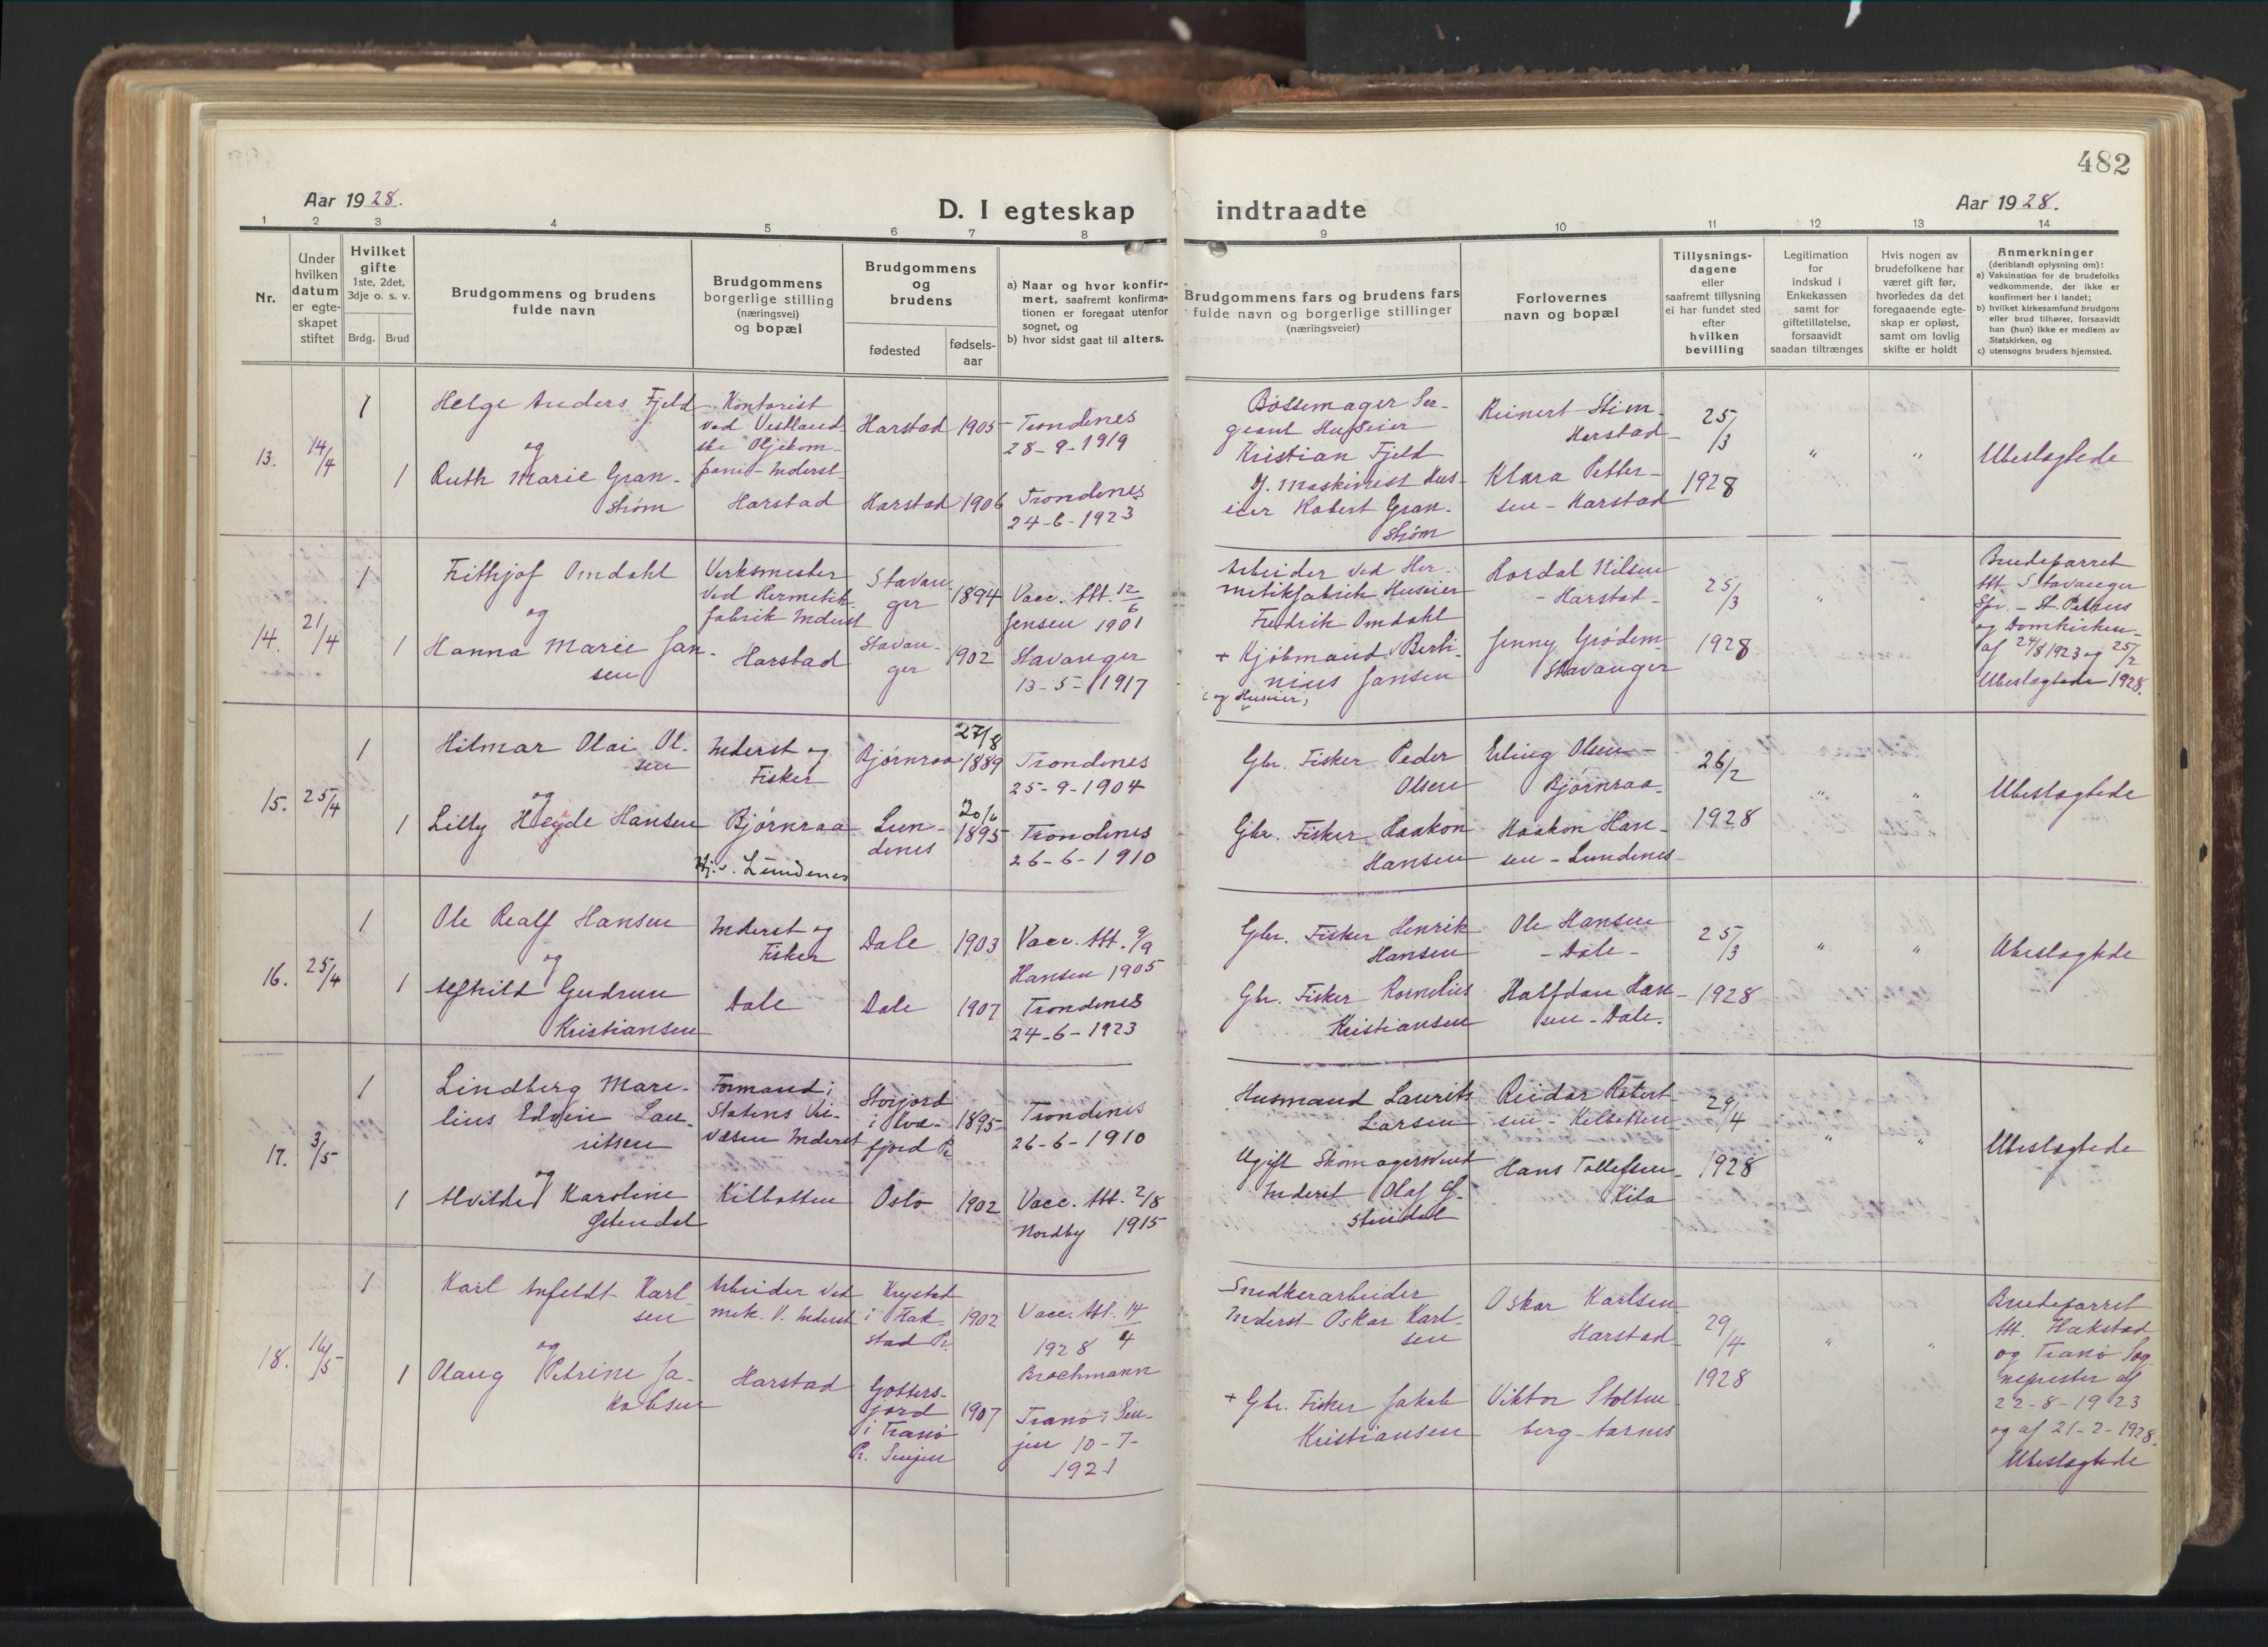 482
Aar 1928.
D. I egteskap indtraadte
Aar 1928.
1 2 3 4 5 6 7 8 9 10 11 12 13 14
Nr.
Under hvilken datum er egte-skapet stiftet
Hvilket gifte 1ste, 2det, 3dje o. s. v.
Brdg. Brud
Brudgommens og brudens fulde navn
Brudgommens borgerlige stilling (næringsvei) og bopæl
Brudgommens og brudens
fødested
fødsels-aar
a) Naar og hvor konfir-mert, saafremt konfirma-tionen er foregaat utenfor sognet, og
b) hvor sidst gaat til alters.
Brudgommens fars og brudens fars fulde navn og borgerlige stillinger (næringsveier)
Forlovernes navn og bopæl
Tillysnings-dagene eller saafremt tillysning ei har fundet sted efter hvilken bevilling
Legitimation for indskud i Enkekassen samt for giftetillatelse, forsaavidt saadan tiltrænges
Hvis nogen av brudefolkene har været gift før, hvorledes da det foregaaende egte-skap er opløst, samt om lovlig skifte er holdt
Anmerkninger
(deriblandt oplysning om):
a) Vaksination for de brudefolks vedkommende, der ikke er konfirmert her i landet;
b) hvilket kirkesamfund brudgom eller brud tilhører, forsaavidt han (hun) ikke er medlem av Statskirken, og
c) utensogns bruders hjemsted.
13.
14/4
1
Helge Anders Fjeld
og
1
Ruth Marie Gran-
strøm
Kontorist
ved Vestland-
ske Oljekom-
pani - Inderst
Harstad
Harstad 1905
Harstad 1906
Trondenes
28-9-1919
Trondenes
24-6-1923
Bøssemager Ser-
geant Huseier
Kristian Fjeld
Maskinist Hus-
eier Robert Gran-
strøm
Reinert Stim-
Harstad
Klara Petter-
sen - Harstad
25/3
1928
" "
Ubeslagtede
14.
21/4
1
Frithjof Omdahl
og
1
Hanna Marie Jan-
sen
Verksmester
ved Hermetik-
fabrik Inderst
Harstad
Stavan-
ger 1894
Stavan-
ger 1902
Vacc. Att. 12/6
Jensen 1901
Stavanger
13-5-1917
Arbeider ved Her-
metikfabrik Huseier
Fredrik Omdahl
+ Kjøbmand Berti-
nius Jansen
og Huseier,
Hordal Nilsen
- Harstad -
Jenny Grødem-
Stavanger
25/3
1928
" "
Brudeparret
Att. Stavanger
Spr. - St. Petrus
og Domkirken
af 24/8 1923 og 25/2
Ubeslagtede 1928.
15.
25/4
1
Hilmar Olai Ol-
sen
og
1
Lilly Heyde Hansen
Inderst og
Fisker
Bjørnraa
Hj. v. Lundenes
Bjørnraa
27/8
1889
Lun-
denes
20/6
1895
Trondenes
25-9-1904
Trondenes
26-6-1910
Gbr. Fisker Peder
Olsen
Gbr. Fisker Haakon
Hansen
Erling Olsen -
Bjørnraa.
Haakon Han-
sen - Lundenes
26/2
1928
" "
Ubeslagtede
16.
25/4
1
Ole Realf Hansen
og
1
Alfhild Gudrun
Kristiansen
Inderst og
Fisker
Dale
Dale 1903
Dale 1907
Vacc. Att. 9/9
Hansen 1905
Trondenes
24-6-1923
Gbr. Fisker Henrik
Hansen
Gbr. Fisker Kornelius
Kristiansen
Ole Hansen
- Dale -
Halfdan Han-
sen - Dale.
25/3
1928
" "
Ubeslagtede
17.
3/5
1
Lindberg Mare-
lius Edvin Lau-
ritsen
og
1
Alvilde Karoline
Formand i
Statens Vei-
væsen Inderst
Kilbotten
Storjord
i Kvæ-
fjord Pr. 1895
Oslo 1902
Trondenes
26-6-1910
Vacc. Att. 2/8
Nordby 1915
Husmand Laurits
Larsen
Ugift Skomagersvend
Inderst Olaf G-
Reidar Robert-
sen - Kilbotten
Hans Tollefsen
Kila
29/4
1928
" "
Ubeslagtede
18.
16/5
1
Karl Anfeldt Karl-
sen
og
1
Olaug Petrine Ja-
kobsen
Arbeider ved
mek. V. Inderst
Harstad
i Hak-
stad Pr. 1902
Gotters-
jord
i Tranø
Pr. Senjen 1907
Vacc. Att. 14/4
1928
Brochmann
Tranø i Sen-
jen 10-7-
1921
Snedkerarbeider
Inderst Oskar Karl-
sen
+ Gbr. Fisker Jakob
Kristiansen
Oskar Karlsen
Harstad
Viktor Stolten-
berg - Aarnes
29/4
1928
" "
Brudeparret
Att. Hakstad
og Tranø Sog-
neprester af
22-8-1923
og af 21-2-1928.
Ubeslagtede